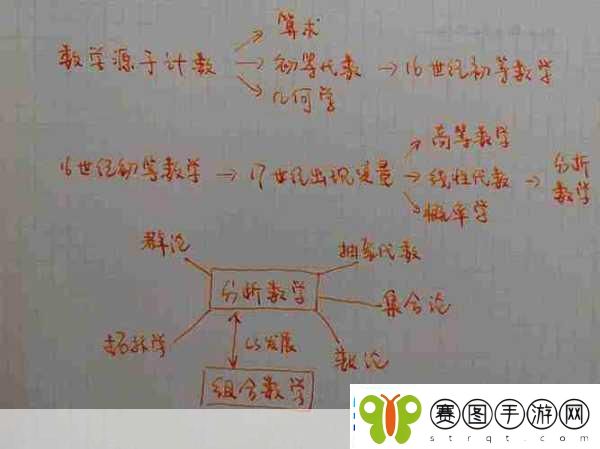 算术
数学源于计数 → 初等代数 → 16世纪初等数学
几何学
高等数学
16世纪初等数学 → 17世纪出现变量 → 线性代数 → 分析数学
概率学
群论
抽象代数
分析数学
集合论
拓扑学
CS发展
数论
组合数学
赛图手游网
strqt.com